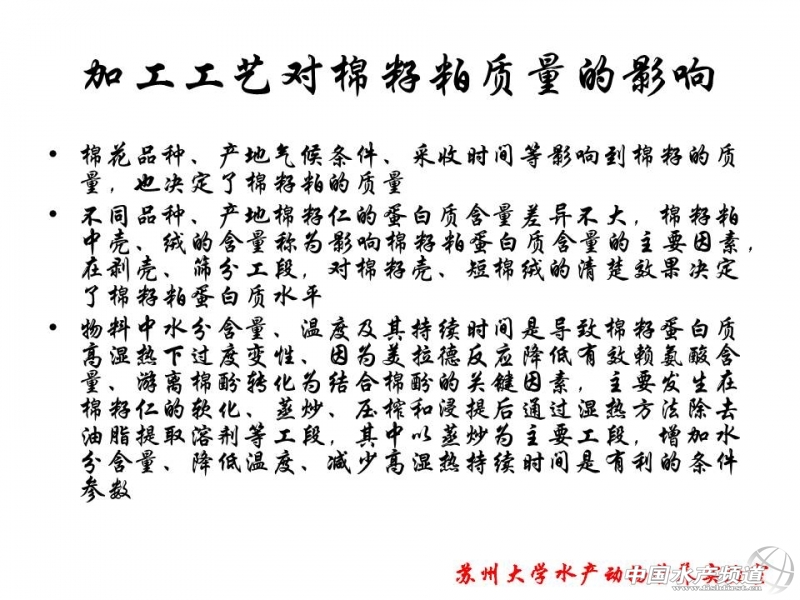 加工工艺对棉籽粕质量的影响
• 棉花品种、产地气候条件、采收时间等影响到棉籽的质
量，也决定了棉籽粕的质量
• 不同品种、产地棉籽仁的蛋白质含量差异不大，棉籽粕
中壳、绒的含量称为影响棉籽粕蛋白质含量的主要因素，
在剥壳、筛分工段，对棉籽壳、短棉绒的清楚效果决定
了棉籽粕蛋白质水平
• 物料中水分含量、温度及其持续时间是导致棉籽蛋白质
高湿热下过度变性、因为美拉德反应降低有效赖氨酸含
量、游离棉酚转化为结合棉酚的关键因素，主要发生在
棉籽仁的软化、蒸炒、压榨和浸提后通过湿热方法除去
油脂提取溶剂等工段，其中以蒸炒为主要工段，增加水
分含量、降低温度、减少高湿热持续时间是有利的条件
参数
苏州大学水产动物
中国水产频道
www.fishfirst.cn